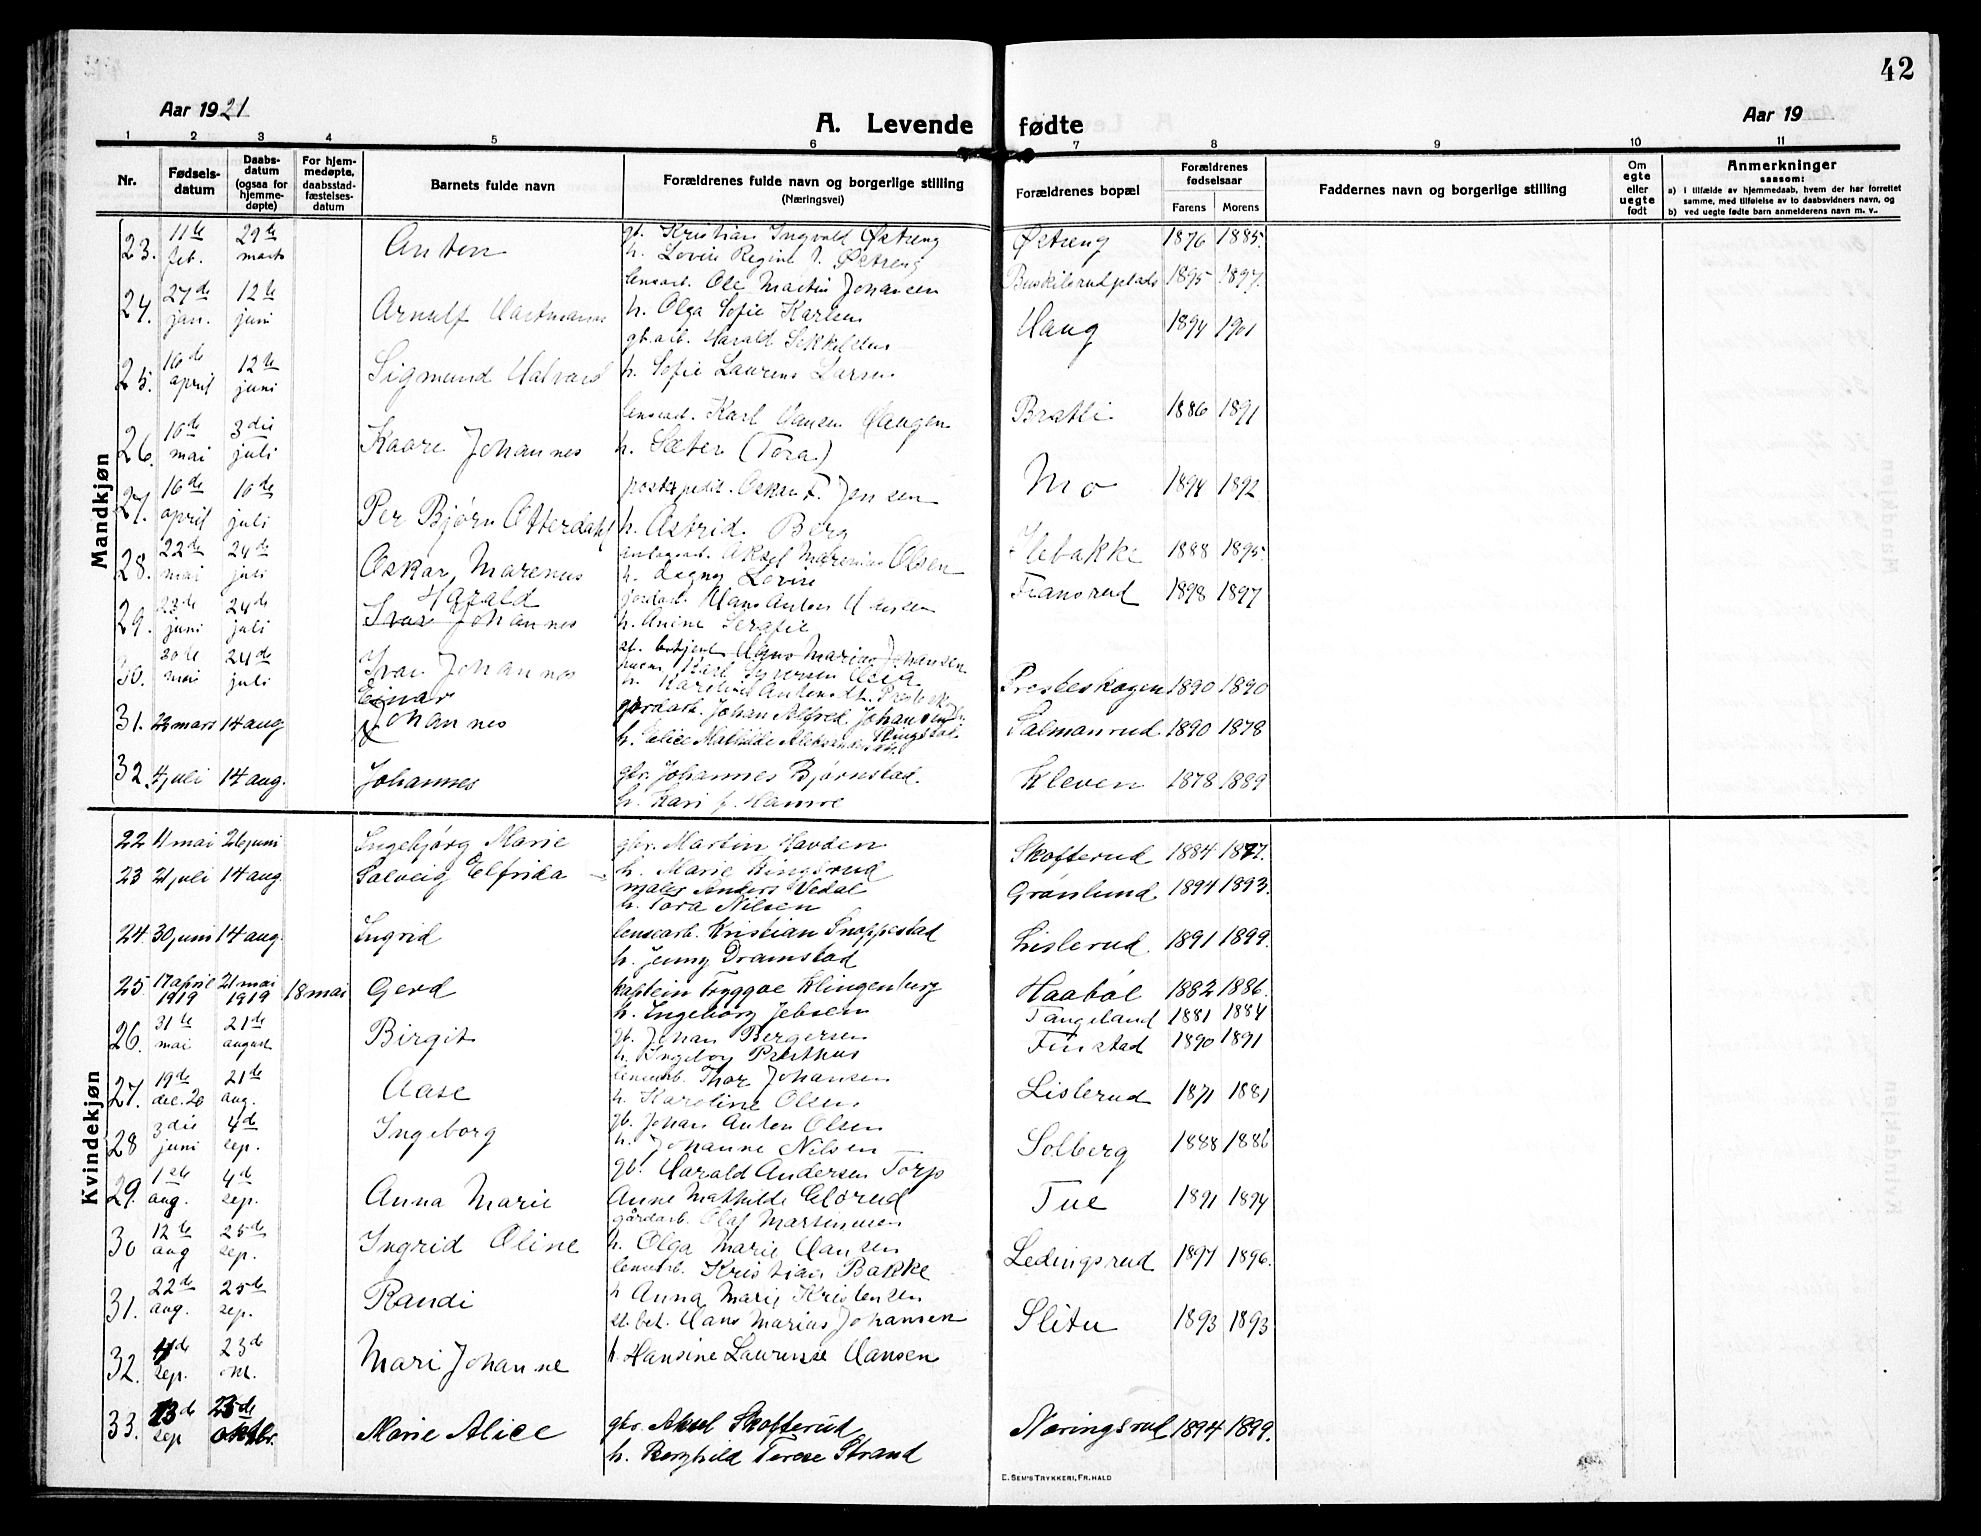 42
Aar 1921
A. Levende fødte
Aar 19
1 2 3 4 5 6 7 8 9 10 11
Nr.
Fødsels-
datum
Daabs-
datum
(ogsaa for
hjemme-
døpte)
For hjem-
medøpte,
daabsstad-
fæstelses-
datum
Barnets fulde navn
Forældrenes fulde navn og borgerlige stilling
(Næringsvei)
Forældrenes bopæl
Forældrenes
fødselsaar
Farens Morens
Faddernes navn og borgerlige stilling
Om
egte
eller
uegte
født
Anmerkninger
saasom:
a) i tilfælde av hjemmedaab, hvem der har forrettet
samme, med tilføielse av to daabsvidners navn, og
b) ved uegte fødte barn anmelderens navn m. v..
Mandkjøn
23. 11te feb. 29te marts Anton gb. Kristian Ingvald Østreng Østreng 1876 1885.
h. Lovise Regine Østreng
24. 27de jan. 12te juni Arnulf Hartmann lensarb. Ole Martin Johansen 1895 1897.
h. Olga Sofie Karlsen
25. 10de april 12te juni Sigmund Halvard gb.arb. Harald Haug 1894 1901
h. Sofie Laurens Larsen
26. 10de mai 3die juli Kaare Johannes lensearb. Karl Hansen Haugen Bratli 1886 1891
h. Sæter (Tora)
27. 16de april 10de juli Per Bjørn Otterdahl postexpedit. Oskar F. Jensen Mo 1894 1892
h. Astrid Berg
28. 22de mai 24de juli Oskar Marenus Aksel Marenius Olsen 1888 1895.
h. Dagny Lovise
29. 23de juni 24de juli Harald
Ivar Johannes jordarb. Hans Anton Hansen Fransrud 1898 1897
h. Anine Serafie
30. 30te mai 24de juli Ivar Johannes st. betjent Hans Marius Johansen
Karl Syversen Presteskogen 1890 1890
h. Karoline
31. 23 mars 14 aug Einar
Johannes gårdarb. Johan Alfred Johansen Salmanrud 1890 1878
h. Alice Mathilde Ringstad
32. 4 juli 14 aug. Johannes gbr. Johannes Bjørnstad. Kleven 1878 1889
h. Kari f. Hamre
Kvindekjøn
22 11 mai 26 juni Ingebjørg Marie gbr. Martin Havden Skofterud 1884 1877.
h. Marie Ringsrud
23 21 juli 14 aug. Solveig Elfrida maler Anders Vedal Grønlund 1894 1893.
h. Tora Nilsen
24. 30 juni 14 aug. Ingrid lensearb. Kristian Snoppestad Lislerud 1891 1899.
h. Jenny Dramstad
25. 17 april 1919 21 mai 1919 18 mai Gerd kaptein Tryggve Klingenberg Haabøl 1882 1886.
h. Ingeborg Jebsen Tangeland 1881 1884
26. 31te mai 21de august Birgit gb. Johan Bergersen Finstad 1890 1891
h. Ingeborg Presthus
27. 19de dec. 20 21de aug. Aase lensearb. Thor Johansen Lislerud 1871 1881
h. Karoline Olsen
28 3die juni 4de sep. Ingeborg gb. Johan Anton Olsen Solberg 1888 1886
h. Johanne Nilsen
29. 1ste aug. 4de sep. Anna Marie gb. Harald Andersen Torp Tue 1891 1894
Anne Mathilde Elorud
30 12te aug 25de sep. Ingrid Oline gårdarb. Olaf Martinusen Ledingsrud 1897 1896.
h. Olga Marie Hansen
31. 22de aug. 25de sep. Randi lensearb. Kristian Bakke Slitu 1893 1893
h Anna Marie Kristensen
32. 4de sep. 23de okt. Mari Johanne st. bet. Hans Marius Johansen
h. Hansine Laurense Hansen
33. 13de sep 23de oktbr. Marie Alice gbr. Aksel Skofterud Næringsrud 1894 1899.
h. Borghild Terese Strand
E. SEM'S TRYKKERI, FR. HALD